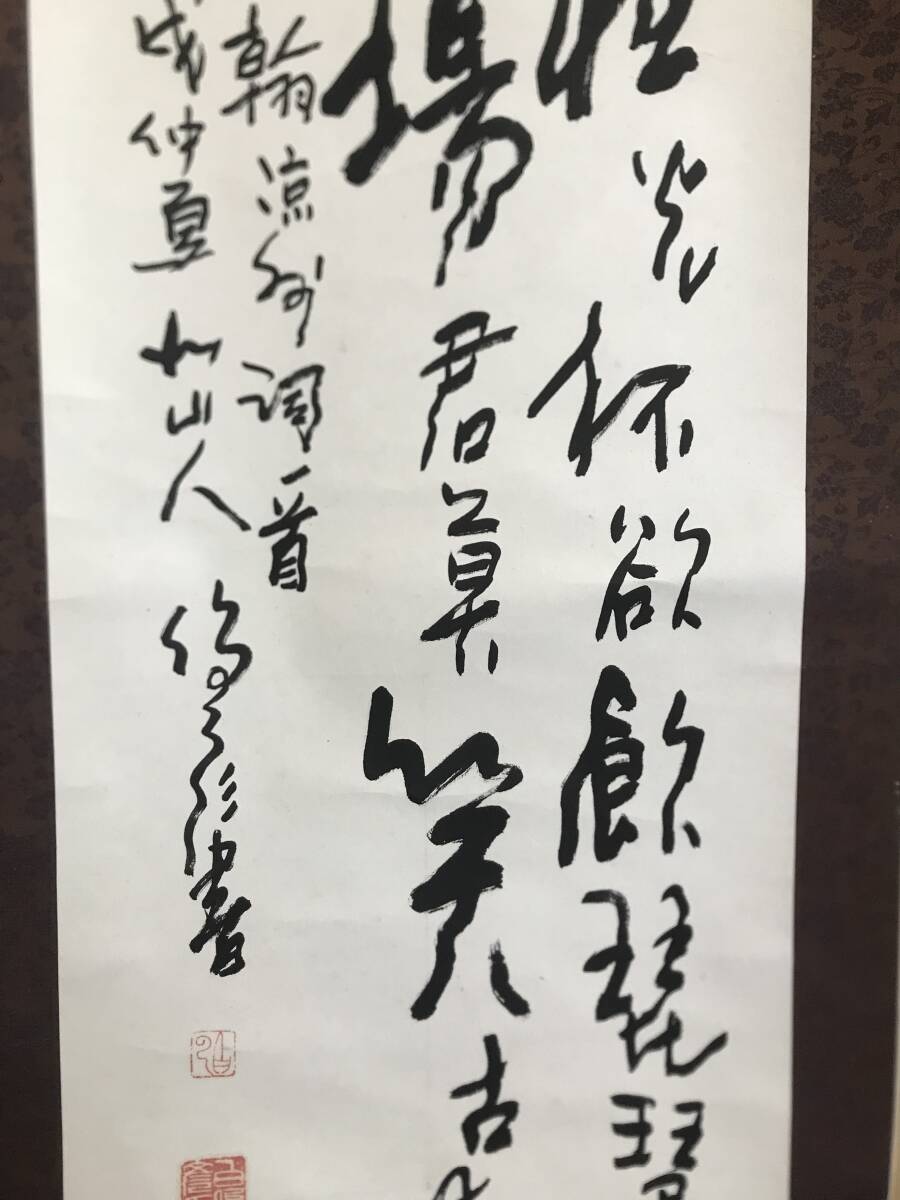 光杯欲飲琵琶
場君莫笑古
翰涼州詞一首
戌仲夏 山人 書